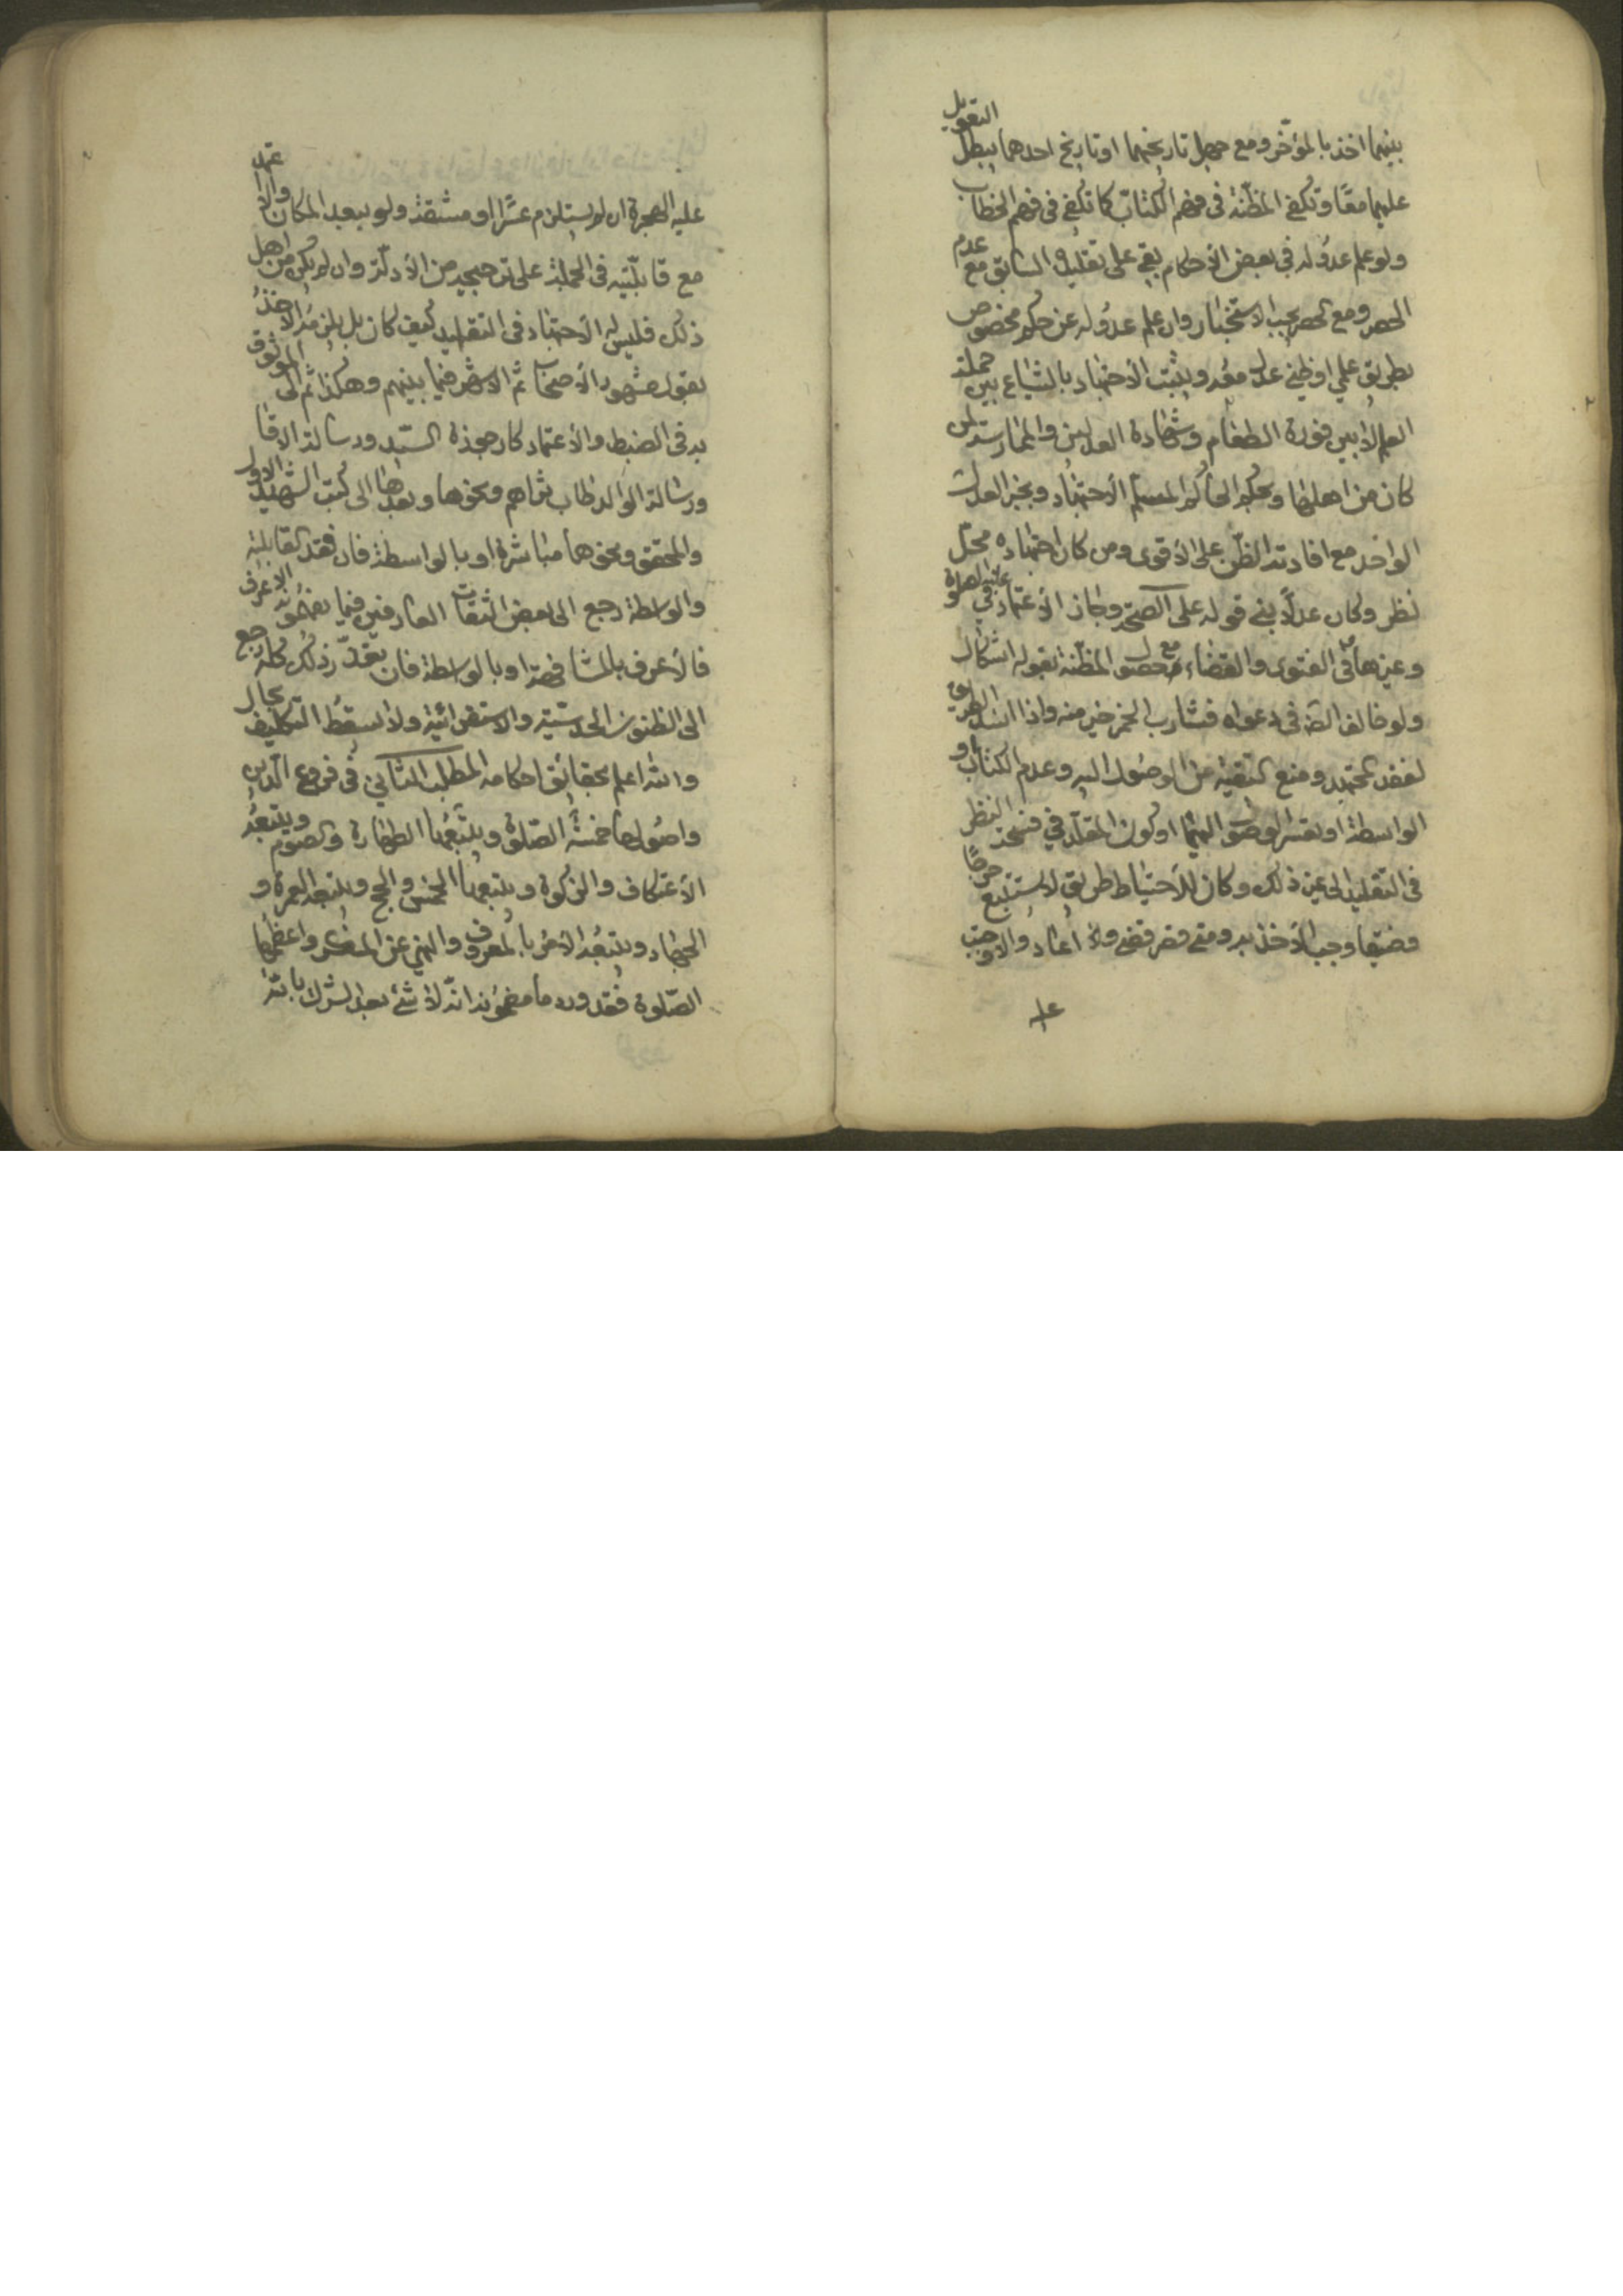 بينهما اخذ بالمؤخّر ومع جهل تاريخهما او تاريخ احدهما يبطل التعويل
عليهما معًا وتكفي المظنّة في فهم الكتاب كما تكفي في فهم الخطاب
ولو علم عدوله في بعض الأحكام بقي على تقليده السابق مع عدم
الحصر ومع الحصر يجب الاستخبار وان علم عدوله عن حكم مخصوص
بطريق علمي او ظني عدل معه ويثبت الأجتهاد بالشياع بين جملة
العلماء لا بين فورة الطغام وشهادة العدلين والممارسة لمن
كان من اهلها وبحكم الحاكم المسلم الأجتهاد وبخبر العدل
الواحد مع افادته الظن على الأقوى ومن كان اجتهاده محل
نظر وكان عدلًا بني قوله على الصحّة وجاز الأعتماد عليه في الصلوة
وغيرها وفي الفتوى والقضاء مع حصول المظنة بقوله اشكال
ولو خالف الظ في دعواه فشارب الخمر خير منه واذا انسد الطريق
لفقد المجتهد ومنع التقية عن الوصول اليه وعدم الكتاب او
الواسطة او تعسر الوصول اليهما او كون المقلد في فسحة النظر
في التقليد الى غير ذلك وكان للأحتياط طريق لا يستتبع حرجًا
وضيقا وجب الأخذ به ومتى قصر قضى و اعاد والا وجب
عليه
عليه الهجرة ان لم يستلزم عسرًا او مشقة ولو ببعد المكان والا عمد
مع قابليّته في الجملة على ترجيح من الأدلّة وان لم يكن من اهل
ذلك فليس له الأجتهاد في التقليد كيف كان بل يلزمه الأخذ
بقول مشهور الأصحاب ثم الأشهر فيما بينهم وهكذا ثم الى الموثوق
به في الضبط والأعتماد كارجوزة السيّد ورسالة الاقا
ورسالة الوالد طاب ثراهم ونحوها وبعدها الى كتب الشهيد الاول
والمحقق ونحوها مباشرة او بالواسطة فان فقد القابلية
والواسطة رجع الى بعض الثقات العارفين فيما يفهمونه الاعرف
فالأعرف بالمشافهة او بالواسطة فان تعذّر ذلك كله رجع
الى الظنون الحدسيّة والاستقرائية ولا يسقط التكليف بحال
والله اعلم بحقائق احكامه المطلب الثاني في فروع الدين
واصولها خمسة الصّلوة ويتبعها الطهارة والصوم ويتبعه
الأعتكاف والزكوة ويتبعها الخمس والحج ويتبعه العمرة و
الجهاد ويتبعه الأمر بالمعروف والنهي عن المنكر واعظمها
الصّلوة فقد ورد ما مضمونه انّه لا شئ بعد الشرك بالله